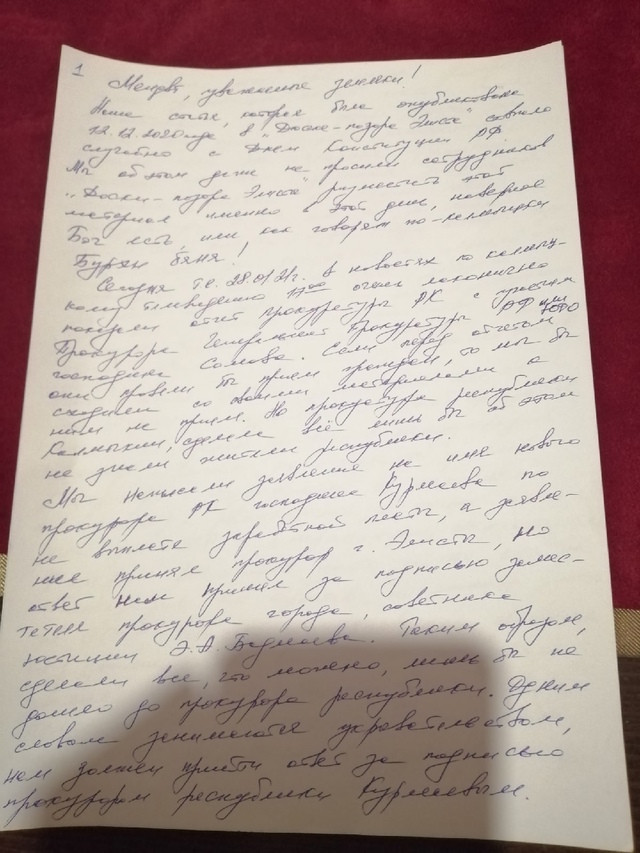 1
Менд, уважаемые земляки!
Наша статья, которая была опубликована
12.12.2020 года в "Доске-позора Элиста" совпала
случайно с Днем Конституции РФ.
Мы об этом даже не просили сотрудников
"Доски-позора Элиста" разместить этот
материал именно в этот день, наверное
Бог есть, или как говорят по-калмыцки
Бурхн бәәнә!
Сегодня т.е. 28.01.21г. в новостях по калмыц-
кому телевидению 17:00 очень лаконично
показали отчет прокуратуры РК с участием
Прокурора Генеральной Прокуратуры РФ или ЮФО
господина Сомова. Если перед отчетом
они провели бы прием граждан, то мы бы
сходили со своими материалами к
ним на прием. Но прокуратура республики
Калмыкии, сделала всё - лишь бы об этом
не знали жители республики.
Мы написали заявление на имя нового
прокурора РК господина Курмаева по
не выплате заработной платы, а заявле-
ние принял прокурор г. Элисты, но
ответ нам пришел за подписью замес-
тителя прокурора города, советника
юстиции Э.А. Бадмаева. Таким образом,
сделали все, что можно, лишь бы не
дошло до прокурора республики. Одним
словом занимаются укрывательством,
нам должен прийти ответ за подписью
прокурором республики Курмаевым.